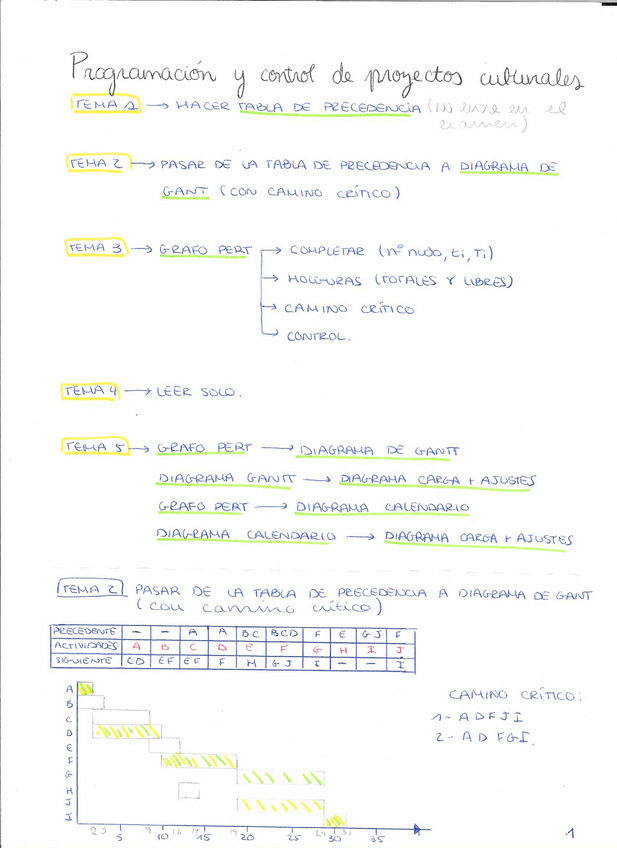 Programación y control de proyectos culturales
TEMA 1 → HACER TABLA DE PRECEDENCIA (No entra en el
examen)
TEMA 2 → PASAR DE LA TABLA DE PRECEDENCIA A DIAGRAMA DE
GANT (CON CAMINO CRÍTICO)
TEMA 3 → GRAFO PERT → COMPLETAR (nº nudo, ti, Ti)
→ HOLGURAS (TOTALES Y LIBRES)
→ CAMINO CRÍTICO
→ CONTROL.
TEMA 4 → LEER SOLO.
TEMA 5 → GRAFO PERT → DIAGRAMA DE GANTT
DIAGRAMA GANTT → DIAGRAMA CARGA + AJUSTES
GRAFO PERT → DIAGRAMA CALENDARIO
DIAGRAMA CALENDARIO → DIAGRAMA CARGA + AJUSTES
TEMA 2 PASAR DE LA TABLA DE PRECEDENCIA A DIAGRAMA DE GANT
(con camino crítico)
PRECEDENTE - - A A BC BCD F E GJ F
ACTIVIDADES A B C D E F G H I J
SIGUIENTE CD EF EF F H GJ I - - I
A
B
C
D
E
F
G
H
J
I
CAMINO CRÍTICO:
1- A D F J I
2- A D F G I.
2 3 5 9 10 12 15 19 20 25 29 30 31 35
1